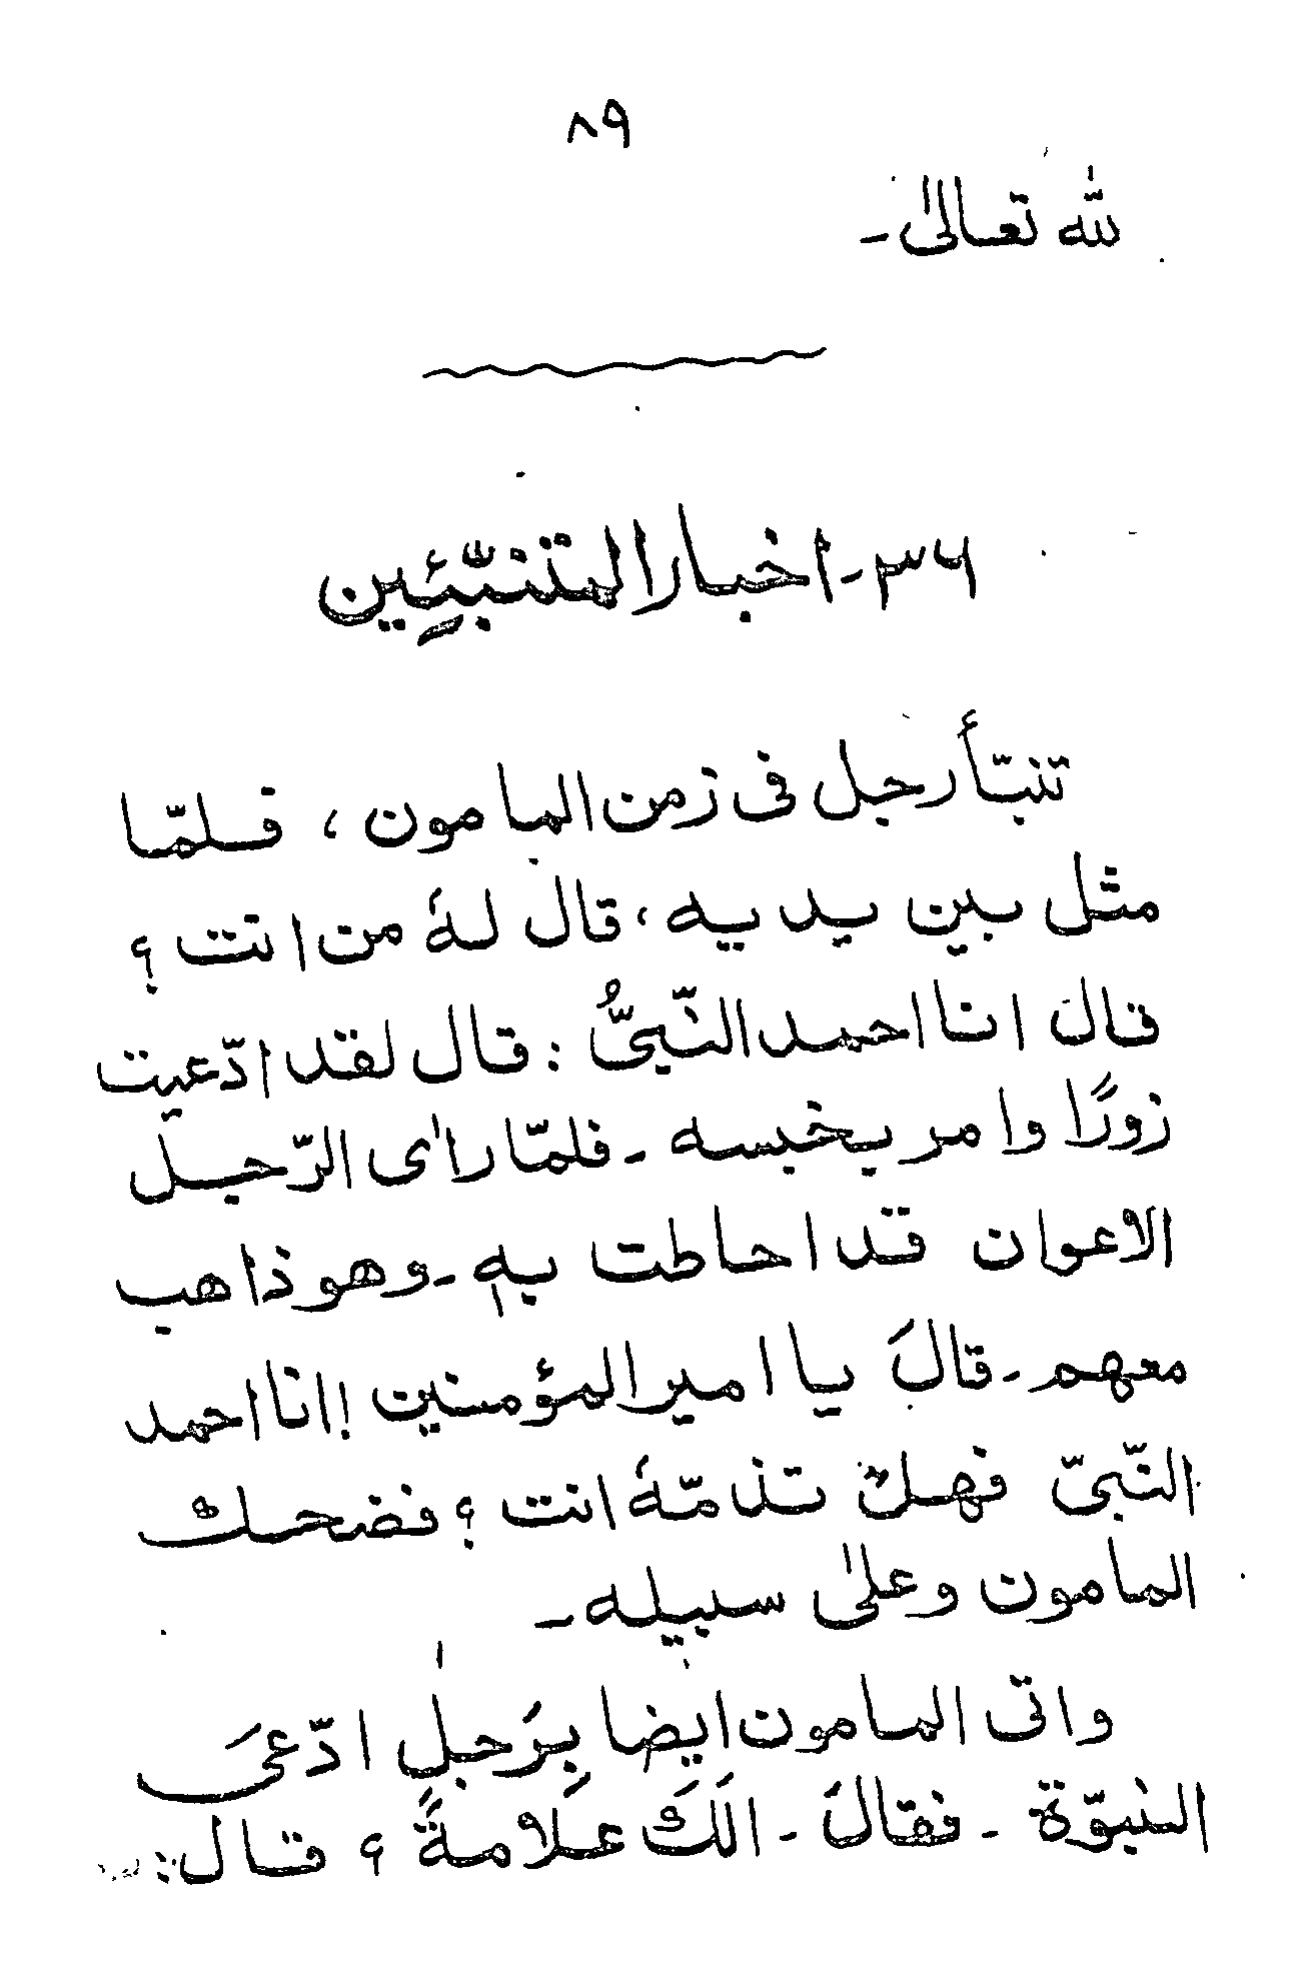 ٨٩
لله تعالىٰ ـ
٣٦ ـ اخبار المتنبّئِين
تنبّأ رجل فى زمن المامون ، فلمّا
مثل بين يديه ، قال لهٗ من انت ؟
قال انا احمد النّبىُّ : قال لقد ادّعيت
زورًا وامر بخبسه ـ فلمّا راٰى الرّجل
الاعوان قد احاطت بهٖ ـ وهو ذاهب
معهم ـ قالَ يا امير المؤمنين ! انا احمد
النّبىّ فهل تذمّهٗ انت ؟ فضحك
المامون وعلىٰ سبيله ـ
واتى المامون ايضا بِرَجلٍ ادّعىَ
النبوّة ـ فقالَ ـ الَكَ علامةً ؟ قال :